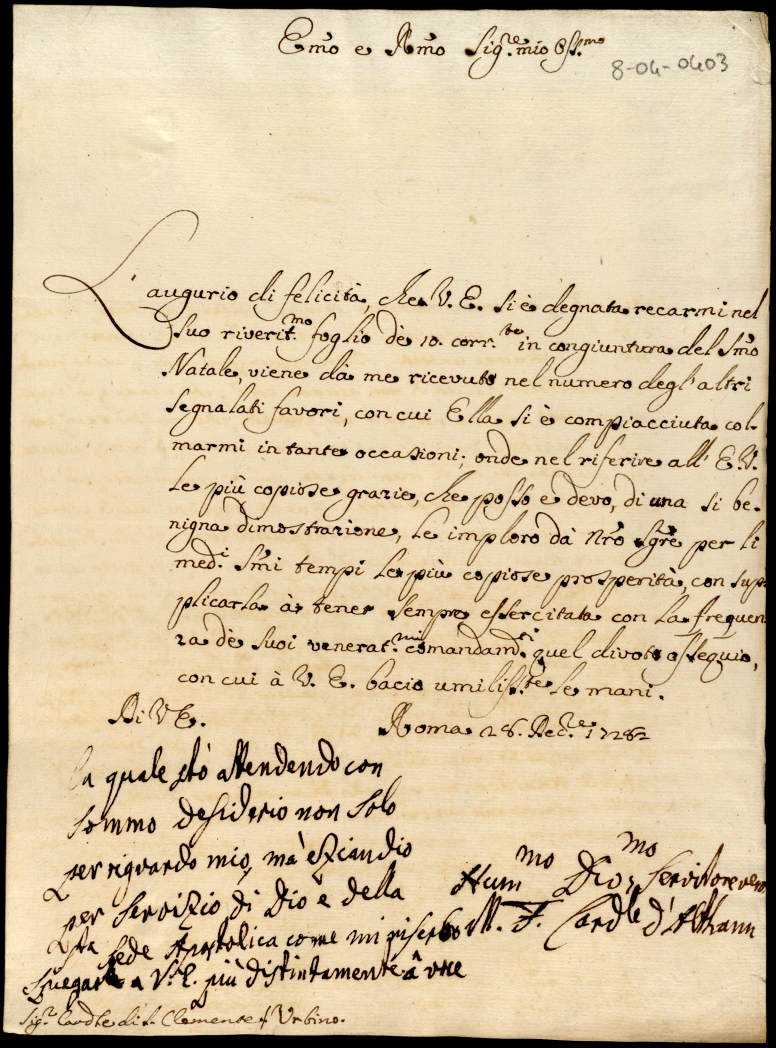 Em̃o e Rm̃o Sig.re mio Oss.mo
8-04-0403
L'augurio di felicità, che V. E. si è degnata recarmi nel
suo riverit.mo foglio de 10. corr.te in congiuntura del Sm̃o
Natale, viene da me ricevuto nel numero degl'altri
segnalati favori, con cui Ella si è compiacciuta col-
marmi in tante occasioni; onde nel riferire all' E. V.
le più copiose grazie, che posso e devo, di una si be-
nigna dimostrazione, le imploro dà Nr̃o Sg̃re per li
med.i Sm̃i tempi le più copiose prosperità, con sup-
plicarla à tener sempre essercitata con la frequen
za de suoi venerat.mi comandam.ti quel divoto ossequio,
con cui à V. E. bacio umiliss.te le mani.
Di V. E.
Roma 28. Dec.re 1728
la quale stò attendendo con
sommo desiderio non solo
per riguardo mio, mà eziandio
per servizio di Dio e della
S.ta Sede Apostolica come mi riserbo
spiegare a V.E. più distintamente à voce
Hum.mo Div.mo Servitore vero
M. F. Card.le d'Althann
Sig.r Card.le di S. Clemente / Urbino.